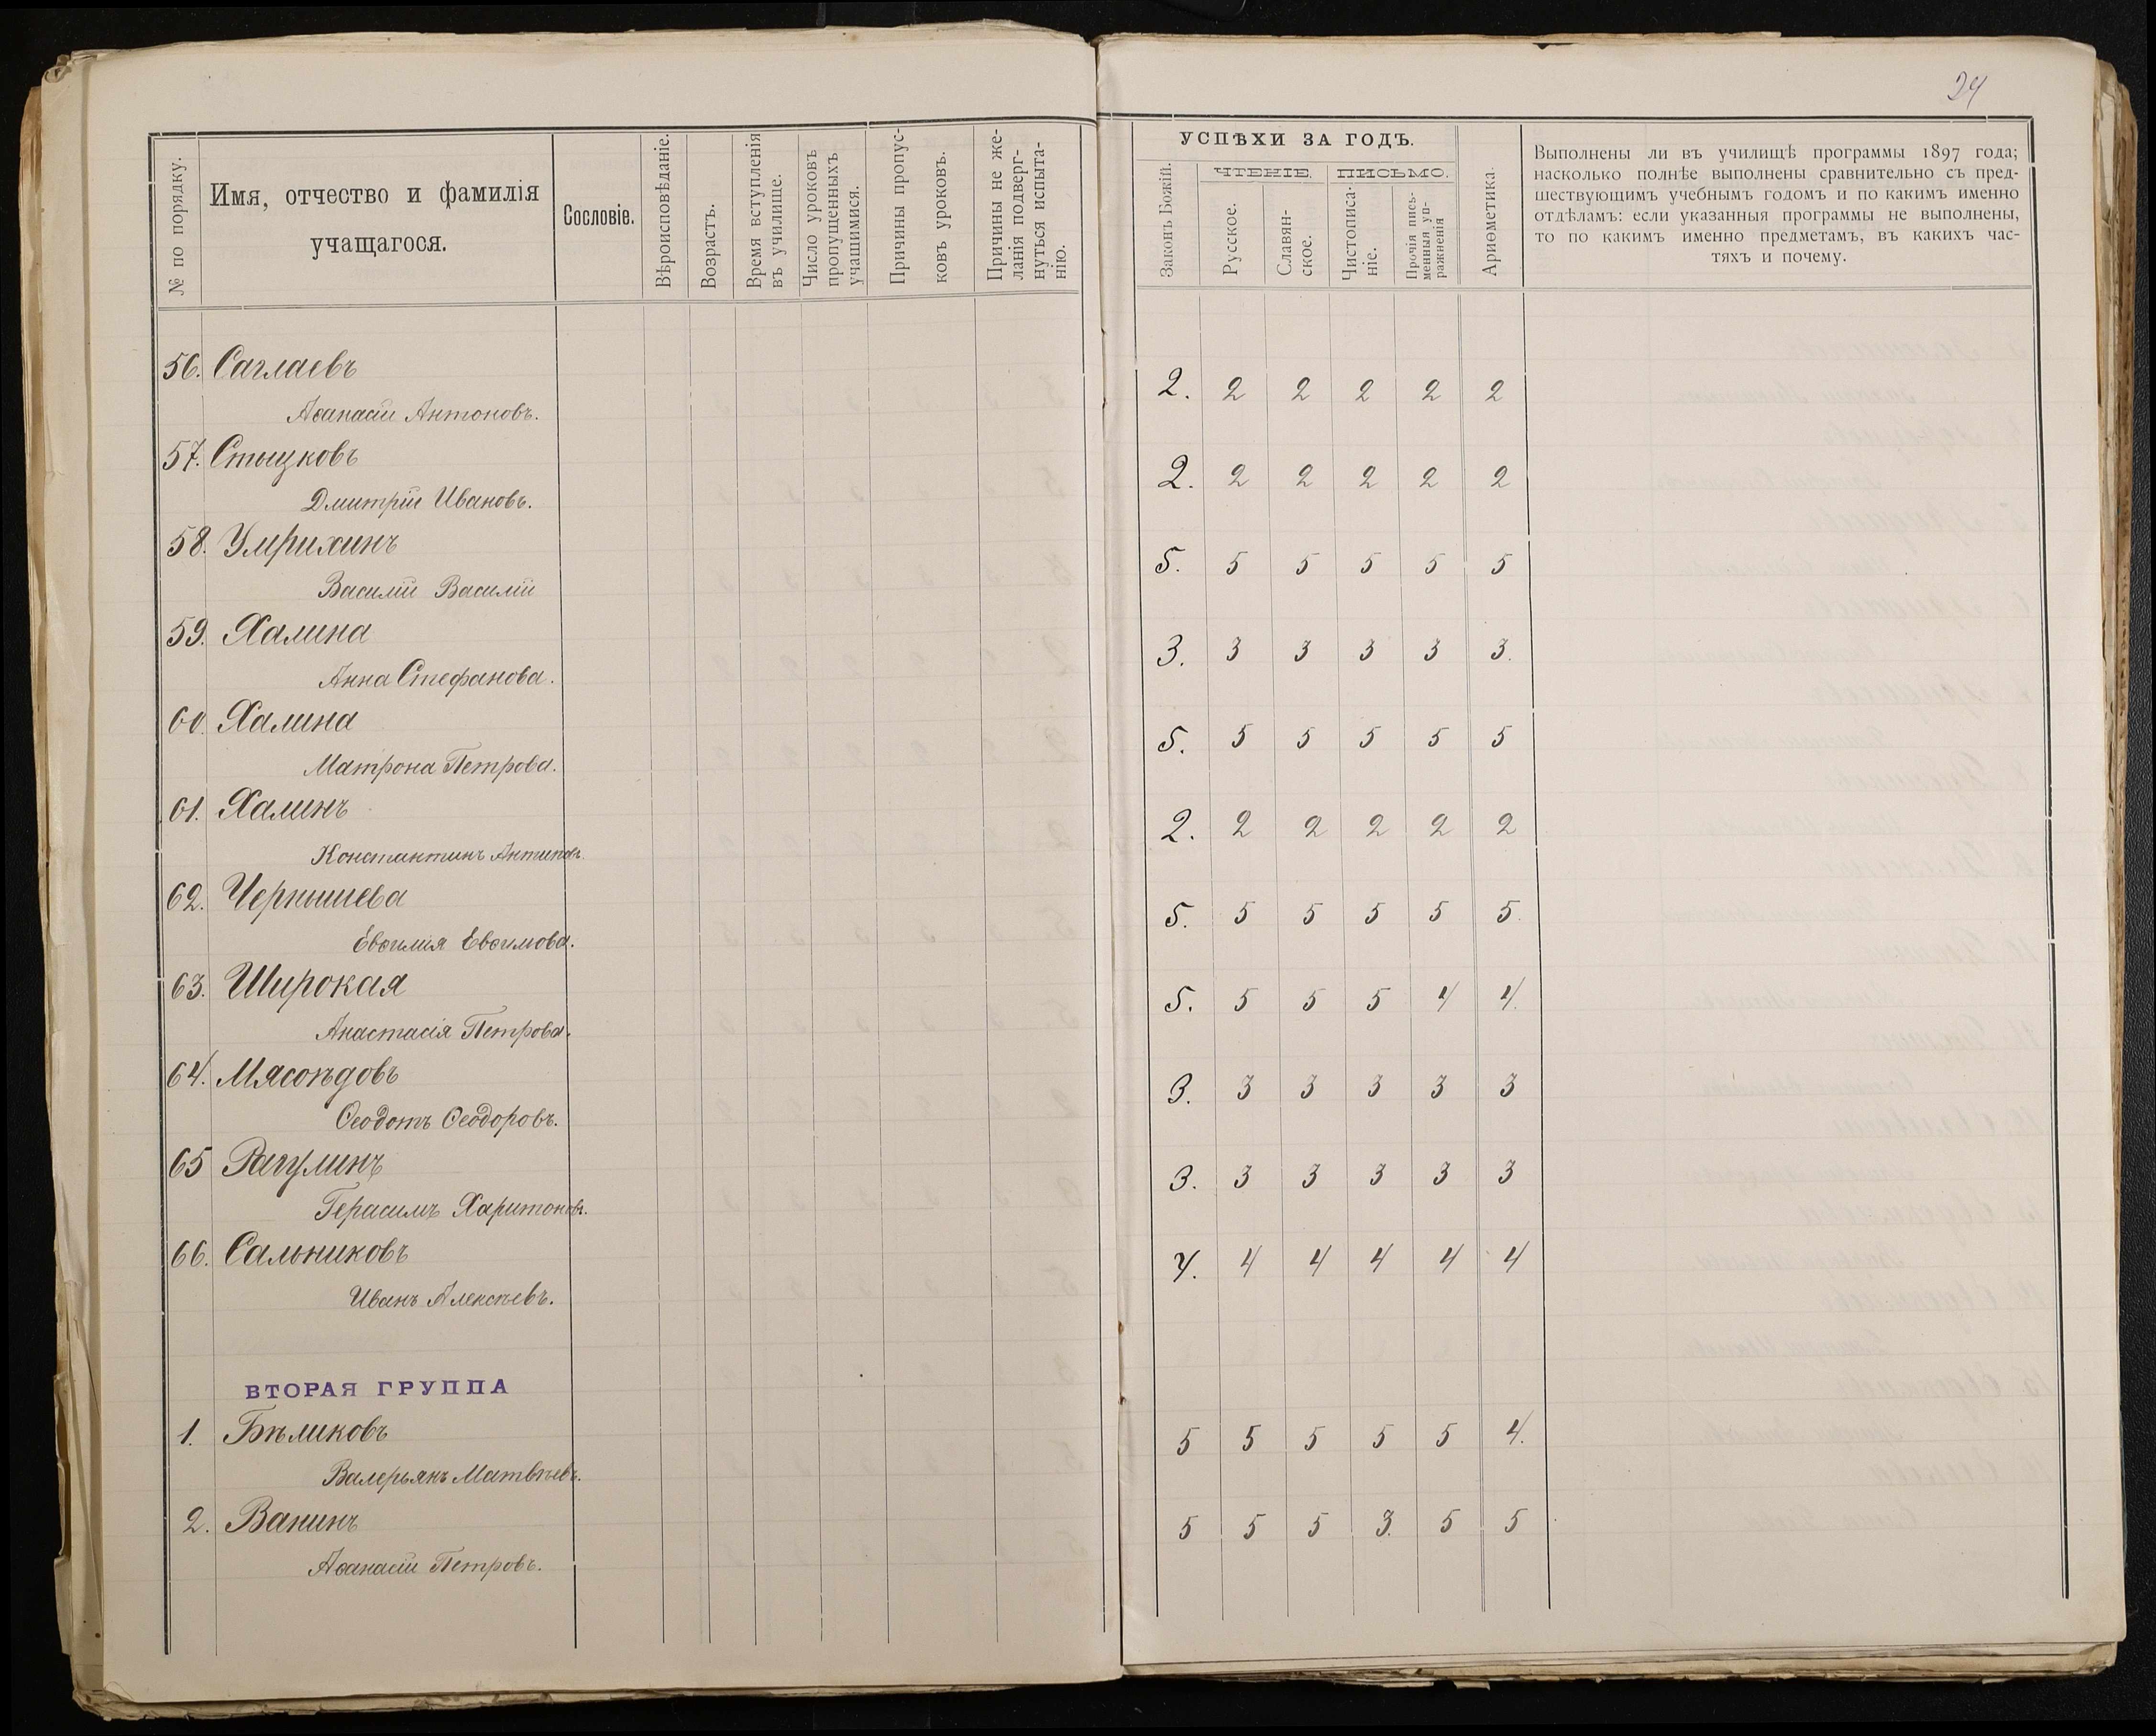 24
№ по порядку.
Имя, отчество и фамилія
учащагося.
Сословіе.
Вѣроисповѣданіе.
Возрастъ.
Время вступленія
въ училище.
Число уроковъ
пропущенныхъ
учащимися.
Причины пропус-
ковъ уроковъ.
Причины не же-
ланія подверг-
нуться испыта-
нію.
УСПѢХИ ЗА ГОДЪ.
Законъ Божій.
ЧТЕНІЕ.
Русское.
Славян-
ское.
ПИСЬМО.
Чистописа-
ніе.
Прочія пись-
менныя уп-
ражненія
Ариѳметика.
Выполнены ли въ училищѣ программы 1897 года;
насколько полнѣе выполнены сравнительно съ пред-
шествующимъ учебнымъ годомъ и по какимъ именно
отдѣламъ: если указанныя программы не выполнены,
то по какимъ именно предметамъ, въ какихъ час-
тяхъ и почему.
56. Саглаевъ
Аѳанасій Антоновъ.
2. 2 2 2 2 2
57. Стыцковъ
Дмитрій Ивановъ.
2. 2 2 2 2 2
58. Умрихинъ
Василій Василій
5. 5 5 5 5 5
59. Халина
Анна Стефанова.
3. 3 3 3 3 3.
60. Халина
Матрона Петрова.
5. 5 5 5 5 5
61. Халинъ
Константинъ Антиповъ.
2. 2 2 2 2 2
62. Чернышева
Евѳимія Евѳимова.
5. 5 5 5 5 5.
63. Широкая
Анастасія Петрова.
5. 5 5 5 4 4.
64. Мясоѣдовъ
Ѳеодотъ Ѳеодоровъ.
3. 3 3 3 3 3
65 Рагулинъ
Герасимъ Харитоновъ.
3. 3 3 3 3 3
66. Сальниковъ
Иванъ Алексѣевъ.
4. 4 4 4 4 4
ВТОРАЯ ГРУППА
1. Бѣликовъ
Валерьянъ Матвѣевъ.
5 5 5 5 5 4.
2. Ванинъ
Аѳанасій Петровъ.
5 5 5 3. 5 5